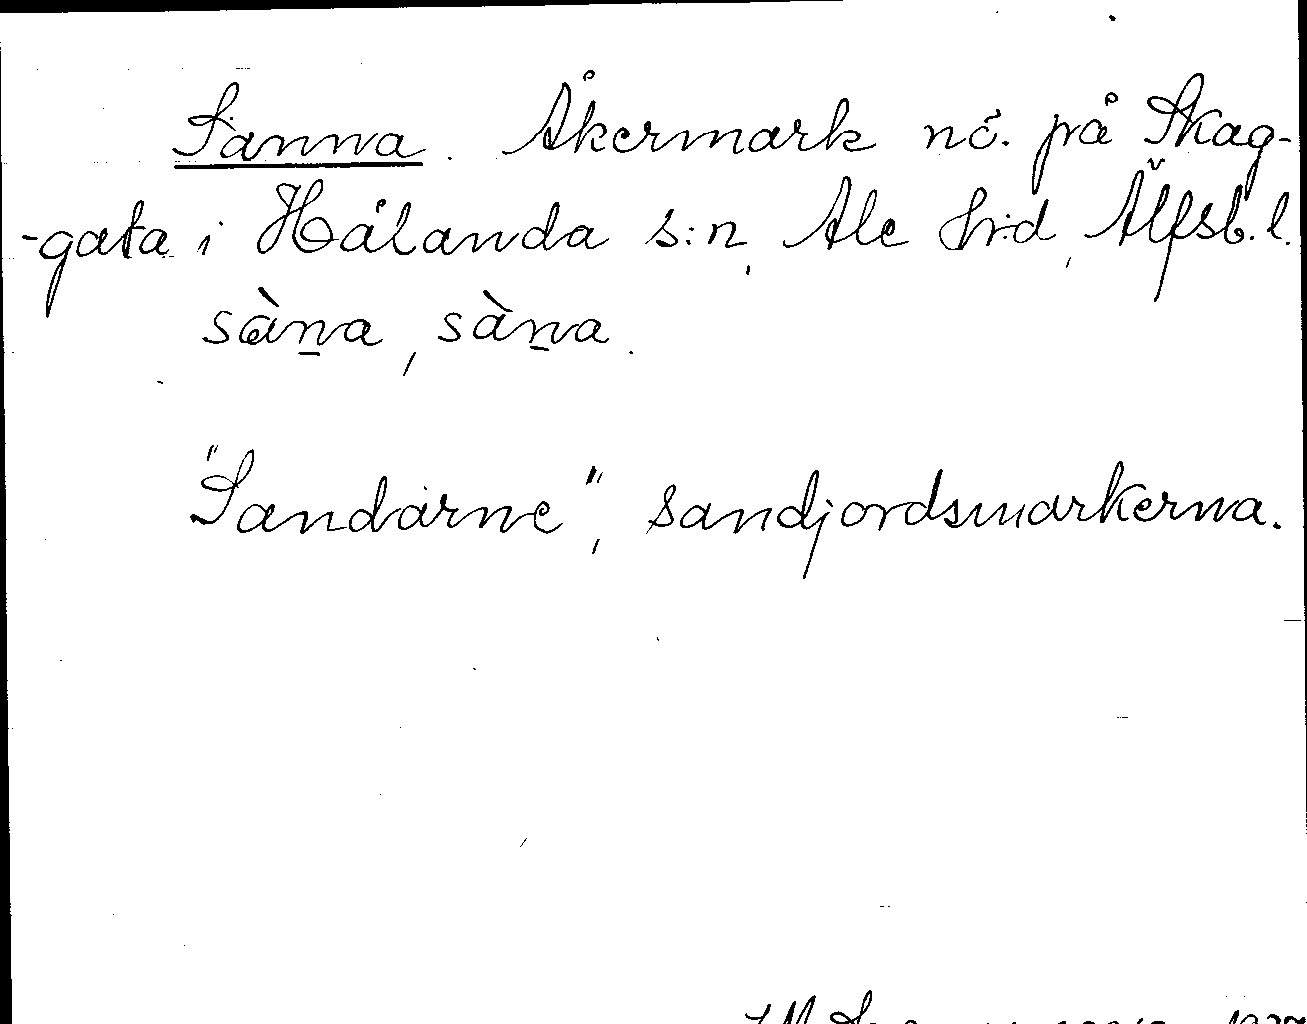 Sanna. Åkermark nö. på Skag-
-gata i Hålanda s:n, Ale hd, Älfsb. l.
sàn̲a, sàn̲a.
"Sandarne", sandjordsmarkerna.